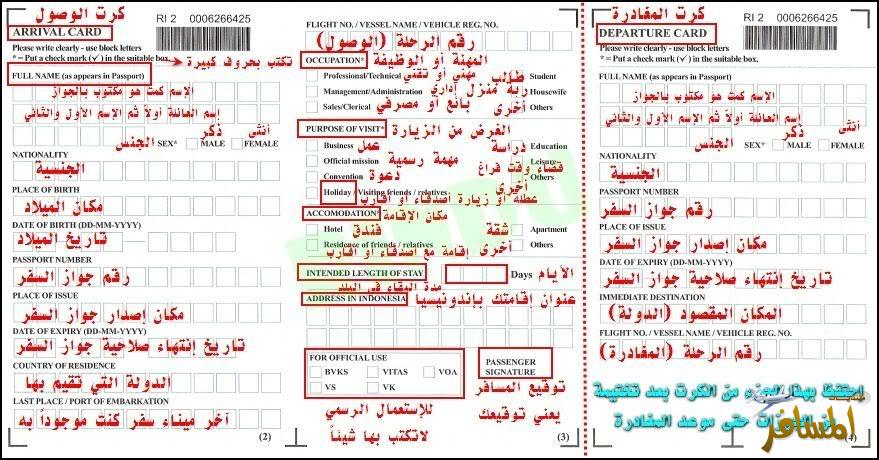 كرت الوصول
RI 2 0006266425
ARRIVAL CARD
Please write clearly - use block letters
* = Put a check mark (√) in the suitable box
تكتب بحروف كبيرة
FULL NAME (as appears in Passport)
الإسم كمت هو مكتوب بالجواز
إسم العائلة أولاً ثم الإسم الأول والثاني
الجنس ذكر أنثى
SEX* MALE FEMALE
NATIONALITY
الجنسية
PLACE OF BIRTH
مكان الميلاد
DATE OF BIRTH (DD-MM-YYYY)
تاريخ الميلاد
PASSPORT NUMBER
رقم جواز السفر
PLACE OF ISSUE
مكان إصدار جواز السفر
DATE OF EXPIRY (DD-MM-YYYY)
تاريخ إنتهاء صلاحية جواز السفر
COUNTRY OF RESIDENCE
الدولة التي تقيم بها
LAST PLACE / PORT OF EMBARKATION
آخر ميناء سفر كنت موجوداً به
(2)
FLIGHT NO. / VESSEL NAME / VEHICLE REG. NO.
رقم الرحلة (الوصول)
OCCUPATION* المهنة أو الوظيفة
Professional/Technical مهني أو تقني طالب Student
Management/Administration إداري ربة منزل Housewife
Sales/Clerical بائع أو مصرفي أخرى Others
PURPOSE OF VISIT* الغرض من الزيارة
Business عمل دراسة Education
Official mission مهمة رسمية قضاء وقت فراغ Leisure
Convention دعوة أخرى Others
Holiday / Visiting friends / relatives
عطلة أو زيارة أصدقاء أو أقارب
ACCOMODATION* مكان الإقامة
Hotel فندق شقة Apartment
Residence of friends / relatives إقامة مع أصدقاء أو أقارب أخرى Others
INTENDED LENGTH OF STAY Days الأيام
مدة البقاء في البلد
ADDRESS IN INDONESIA عنوان إقامتك بإندونيسيا
FOR OFFICIAL USE
BVKS VITAS VOA
VS VK
للإستعمال الرسمي
لاتكتب بها شيئاً
PASSENGER SIGNATURE
توقيع المسافر
يعني توقيعك
(3)
كرت المغادرة
RI 2 0006266425
DEPARTURE CARD
Please write clearly - use block letters
* = Put a check mark (√) in the suitable box.
FULL NAME (as appears in Passport)
الإسم كمت هو مكتوب بالجواز
إسم العائلة أولاً ثم الإسم الأول والثاني
الجنس ذكر أنثى
SEX* MALE FEMALE
NATIONALITY
الجنسية
PASSPORT NUMBER
رقم جواز السفر
PLACE OF ISSUE
مكان إصدار جواز السفر
DATE OF EXPIRY (DD-MM-YYYY)
تاريخ إنتهاء صلاحية جواز السفر
IMMEDIATE DESTINATION
المكان المقصود (الدولة)
FLIGHT NO. / VESSEL NAME / VEHICLE REG. NO.
رقم الرحلة (المغادرة)
إحتفظ بهذا الجزء من الكرت بعد تختيمة
الجوازات حتى موعد المغادرة
المسافر
(4)